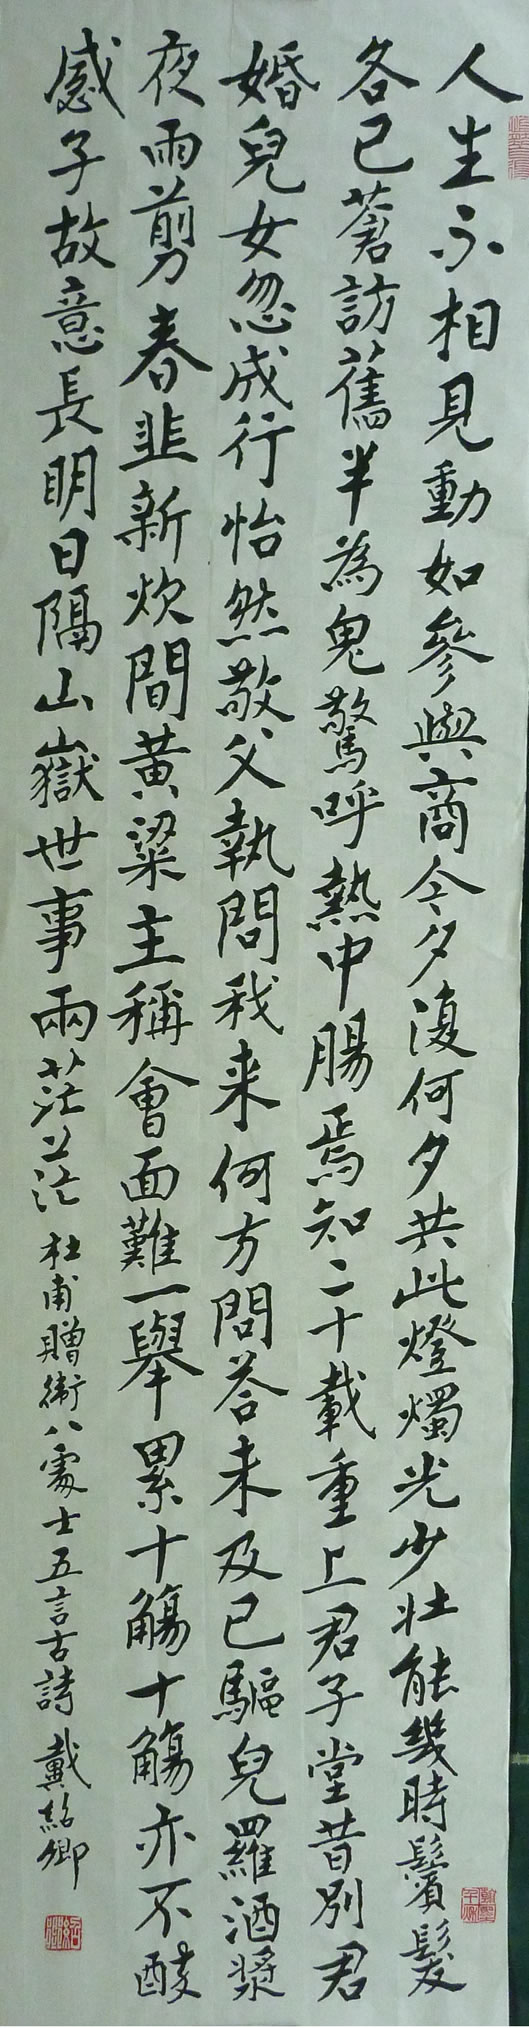 人生不相見動如參與商今夕復何夕共此燈燭光少壯能幾時鬢髮
各已蒼訪舊半為鬼驚呼熱中腸焉知二十載重上君子堂昔別君
婚兒女忽成行怡然敬父執問我来何方問答未及已驅兒羅酒漿
夜雨剪春韭新炊間黃粱主稱會面難一舉累十觴十觴亦不醉
感子故意長明日隔山嶽世事兩茫茫 杜甫贈衛八處士五言古詩 戴紹卿